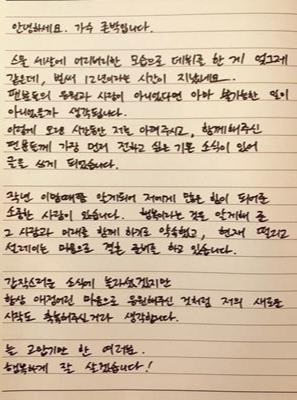 안녕하세요. 가수 존박입니다.
스물 세살에 어리버리한 모습으로 데뷔를 한 게 엊그제
같은데, 벌써 12년이라는 시간이 지났네요..
팬분들의 응원과 사랑이 아니었다면 아마 불가능한 일이
아니었을까 생각됩니다.
이렇게 오랜 시간동안 저를 아껴주시고, 함께해주신
팬분들께 가장 먼저 전하고 싶은 기쁜 소식이 있어
글을 쓰게 되었습니다.
작년 이맘때쯤 알게되어 저에게 많은 힘이 되어준
소중한 사람이 있습니다. 행복이라는 것을 알게해 준
그 사람과 미래를 함께 하기로 약속했고, 현재 떨리고
설레이는 마음으로 결혼 준비를 하고 있습니다.
갑작스러운 소식에 놀라셨겠지만
항상 애정어린 마음으로 응원해주신 것처럼 저의 새로운
시작도 축복해주실거라 생각합니다.
늘 고맙기만 한 여러분.
행복하게 잘 살겠습니다!